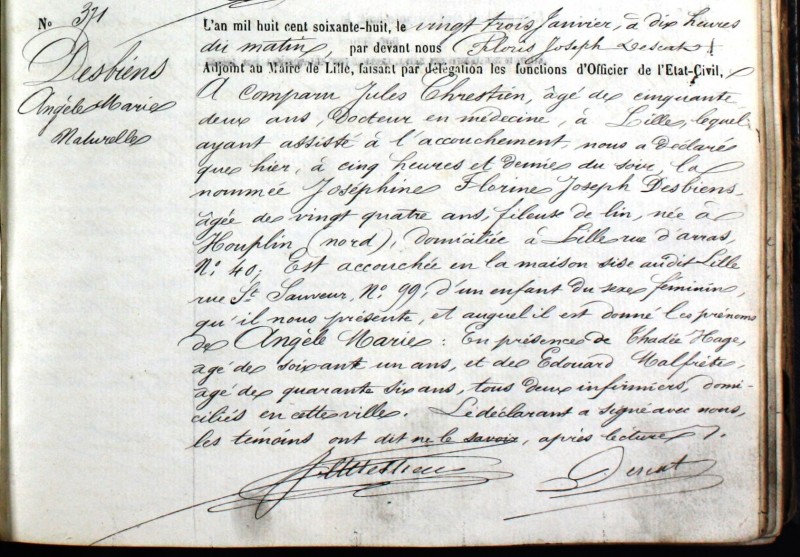 No 371
L'an mil huit cent soixante-huit, le vingt trois Janvier, à dix heures
du matin, par devant nous Floris Joseph Descat
Adjoint au Maire de Lille, faisant par délégation les fonctions d'Officier de l'Etat-Civil,
Desbiens
Angèle Marie
Naturelle
A comparu Jules Chrestien, âgé de cinquante
deux ans, Docteur en médecine, à Lille, lequel
ayant assisté à l'accouchement, nous a déclaré
que hier, à cinq heures et demie du soir, la
nommée Joséphine Florine Joseph Desbiens,
âgée de vingt quatre ans, fileuse de lin, née à
Houplin (nord), domiciliée à Lille rue d'arras,
No. 40; Est accouchée en la maison sise audit Lille
rue St Sauveur, No. 99, d'un enfant du sexe féminin,
qu'il nous présente, et auquel il est donné les prénoms
de Angèle Marie: En présence de Thadée Hage,
âgé de soixante un ans, et de Edouard Malfrête,
âgé de quarante six ans, tous deux infirmiers, domi-
ciliés en cette ville. Le déclarant a signé avec nous,
les témoins ont dit ne le savoir, après lecture.
J. Chrestien
Descat